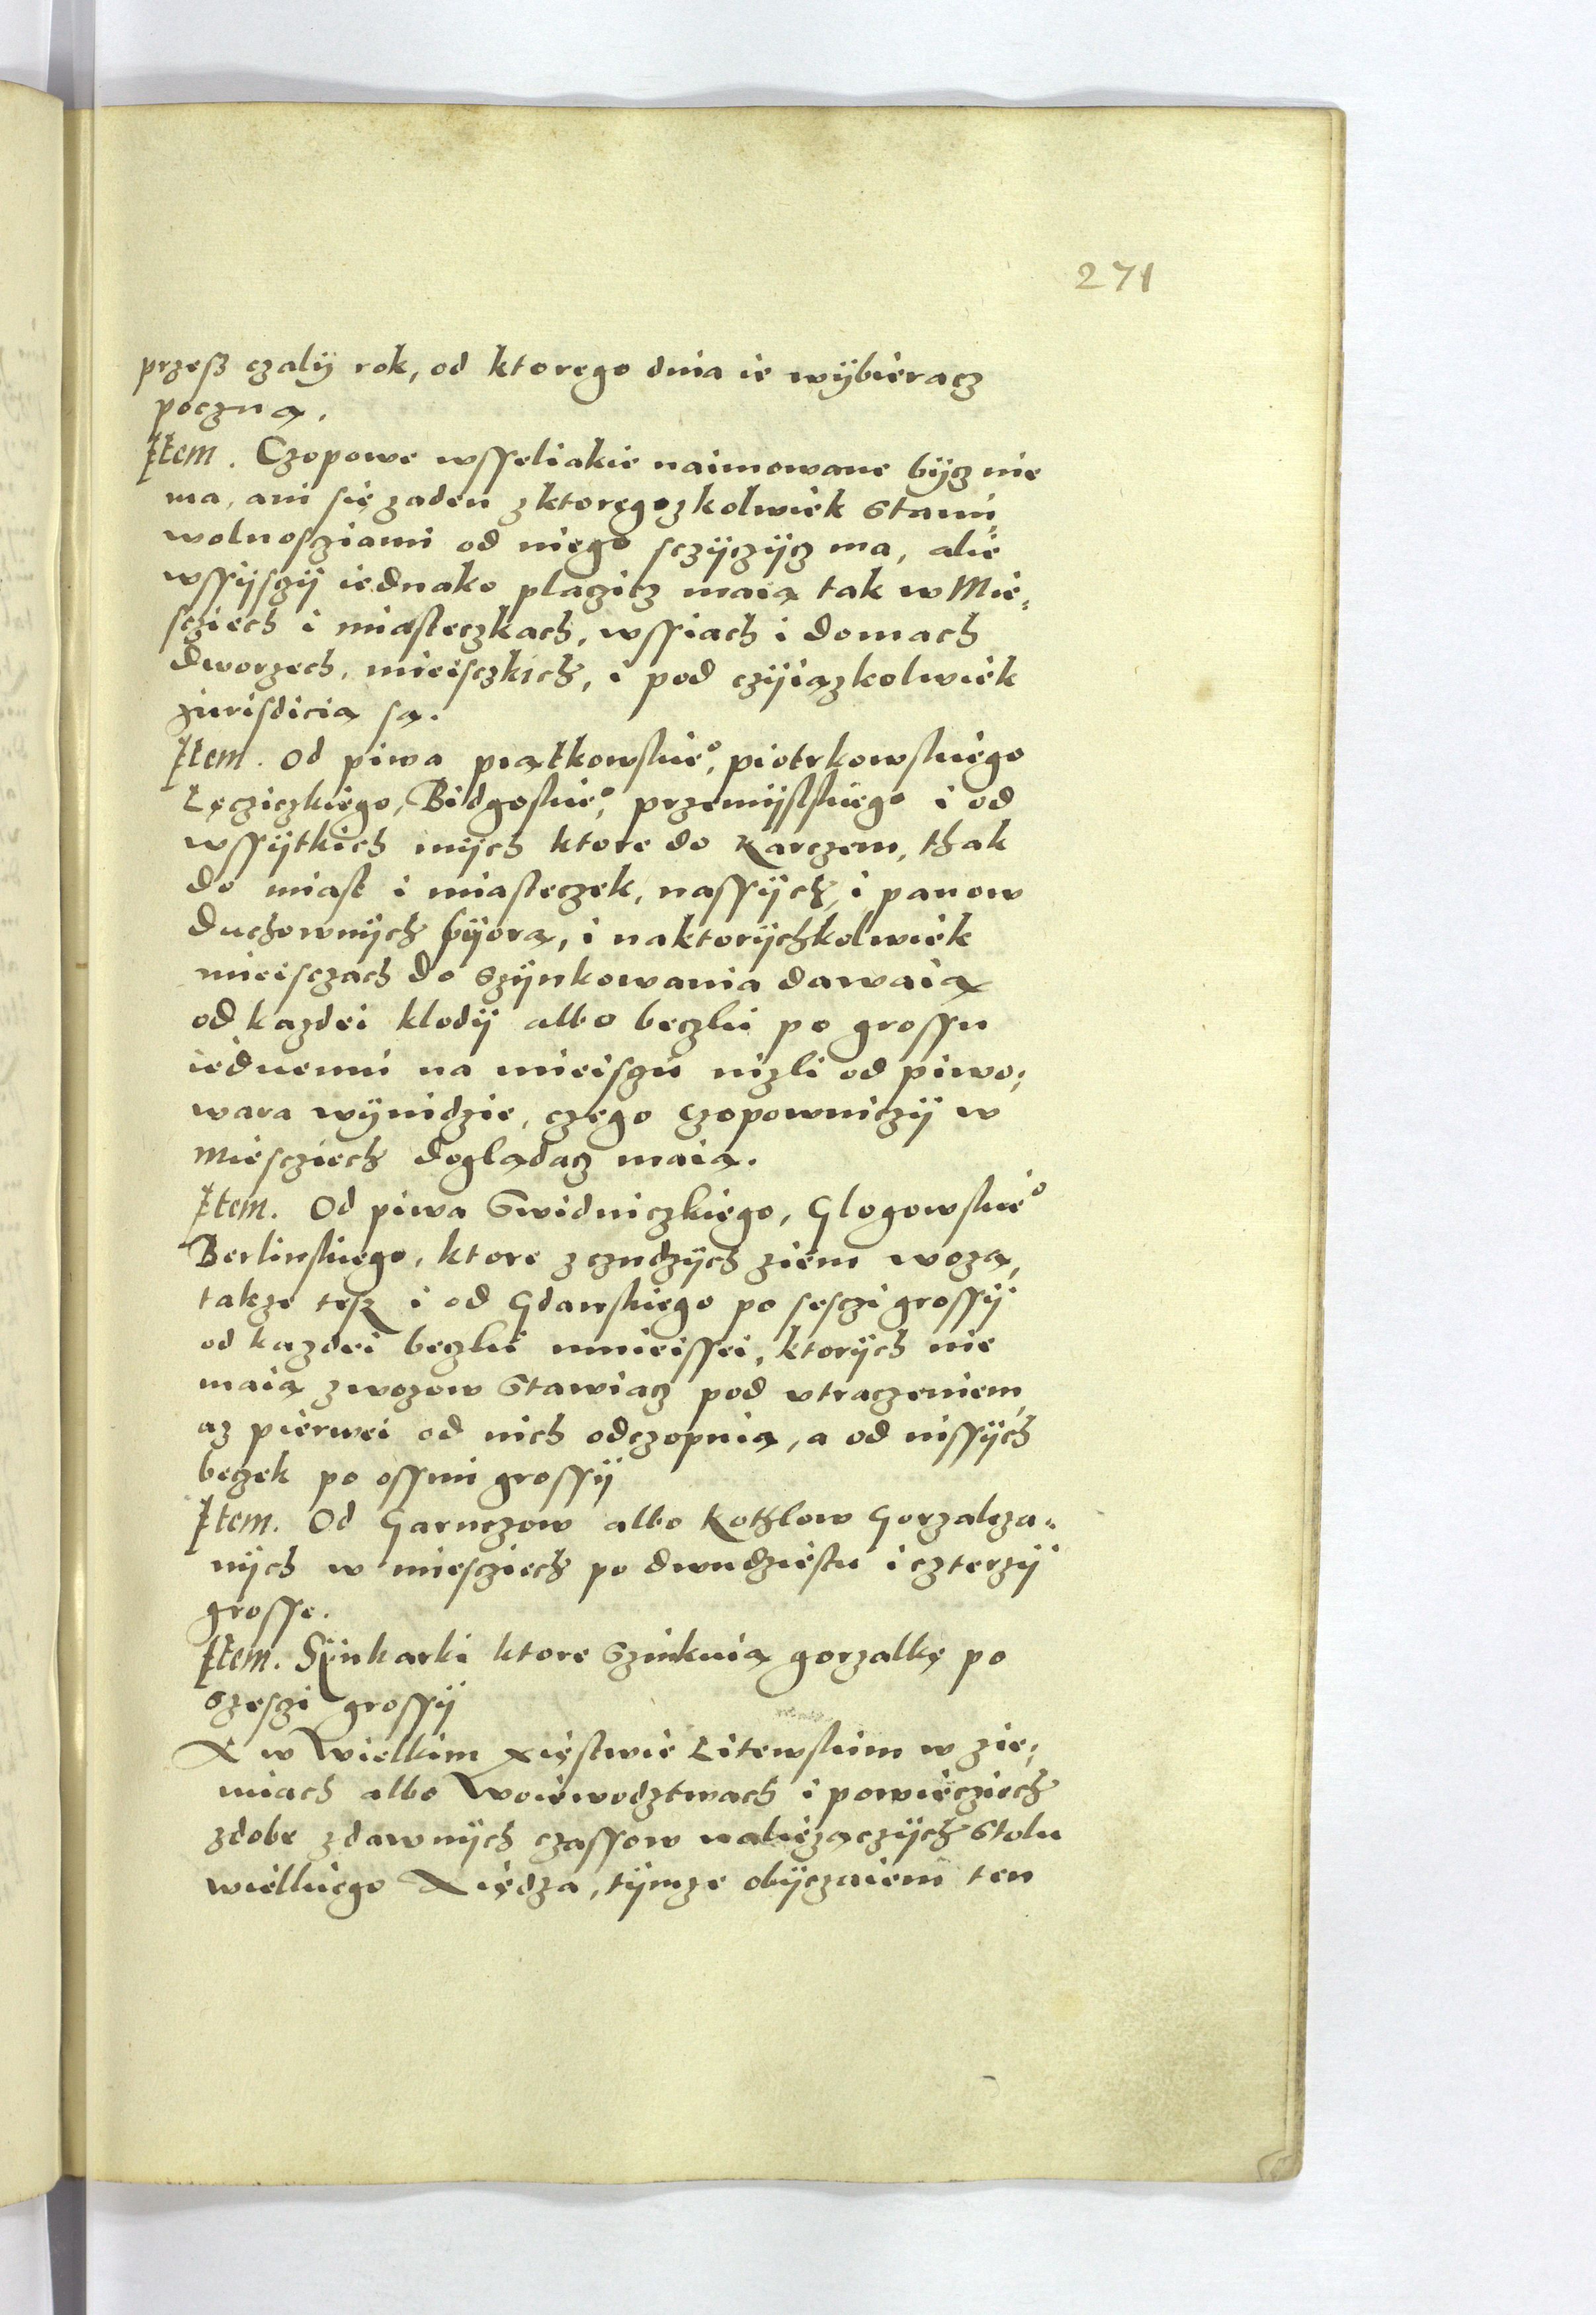 271
przesz czalÿ rok, od ktorego dnia ie wÿbieracz
poczną.
Item. Czopowe wsseliakie naimowane bÿcz nie
ma, ani się zaden z ktoregozkolwiek stanu,
wolnosciami od niego sczÿczÿcz ma, alie
wssÿsczÿ iednako placzicz maią tak w Mie,
scziech i miasteczkach, wssiach i domach
dworzech, mieisczkich, i pod czÿiązkolwiek
Jurisdicią są.
Item. Od piwa piątkowskie°, piotrkowskiego
Lęcziczkiego, Bidgoskie°, przemÿslskiego i od
wssÿtkich inÿch ktore do karczem, thak
do miast i miasteczek, nassÿch, i panow
duchownÿch bÿorą, i naktorÿchkolwiek
mieisczach do szÿnkowania dawaią
od kazdei klodÿ albo beczki po grossu
iednemu na mieisczu nizli od piwo,
wara wÿnidzie, czego czopowniczÿ w
miescziech doglądacz maią.
Item. Od piwa Swidniczkiego, Glogowskie°
Berlinskiego, ktore z czudzÿch ziem wozą,
takze tesz i od Gdanskiego po sesczi grossÿ
od kazdei beczki mnieissei, ktorÿch nie
maią zwozow stawiacz pod vtraczeniem,
az pierwei od nich odczopuią, a od wissÿch
beczek po ossmi grossÿ
Item. Od Garnczow albo kothlow Gorzalcza,
nÿch w miescziech po dwudziestu i czterzÿ
grosse.
Item. Sÿnkarki ktore szinkuią gorzalkę po
szesczi grossÿ
A w Wielkim Xięstwie Litewskim w zie,
miach albo Woiewodztwach i powiecziech
zdobe zdawnÿch czassow nalezączÿch stolu
wielkiego Xiędza, tÿmze obÿczaiem ten